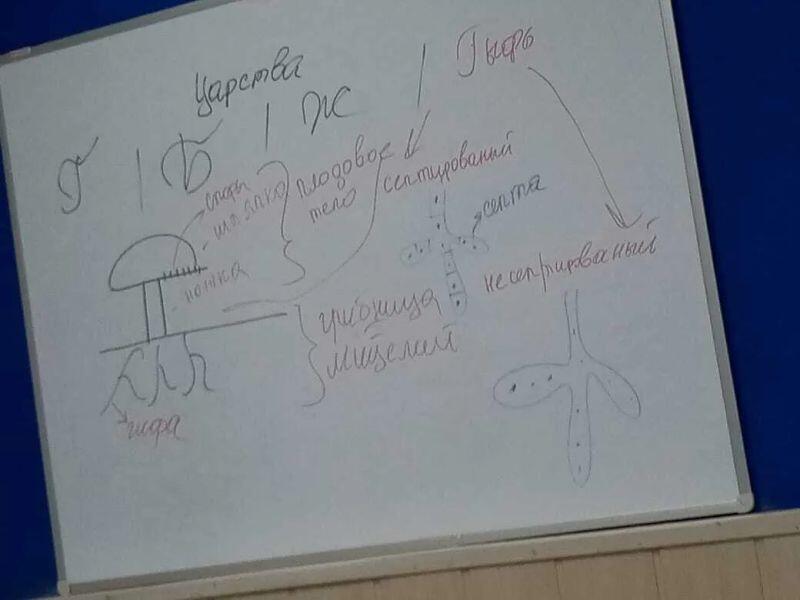 царства
Г | Б | Ж |
споры
шляпка
плодовое
тело
септированый
септа
ножка
несептированый
грибница
мицелий
гифа